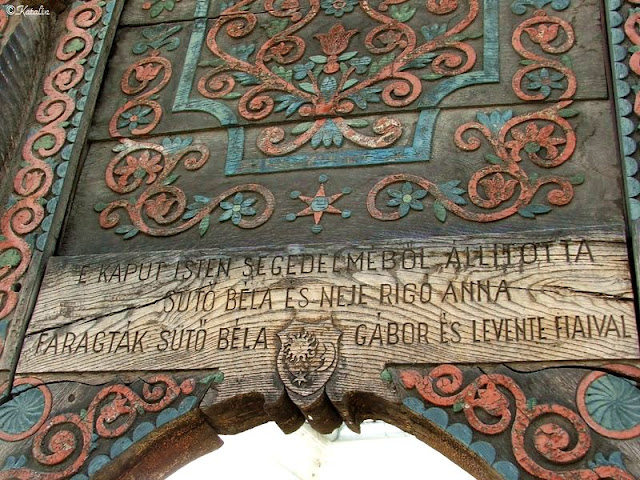 ©Katalin
E KAPUT ISTEN SEGEDELMÉBŐL ÁLLÍTOTTA
SÜTŐ BÉLA ÉS NEJE RIGÓ ANNA
FARAGTÁK SÜTŐ BÉLA GÁBOR ÉS LEVENTE FIAIVAL